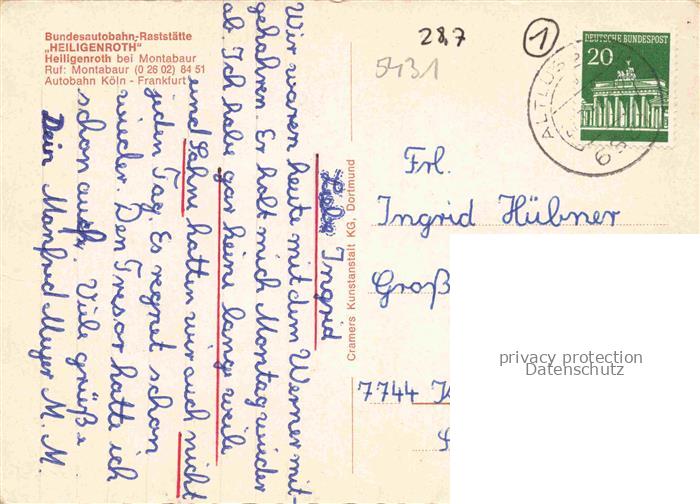 Bundesautobahn-Raststätte
„HEILIGENROTH"
Heiligenroth bei Montabaur
Ruf: Montabaur (0 26 02) 84 51
Autobahn Köln - Frankfurt
28,7
1
5431
DEUTSCHE BUNDESPOST
20
ALTLUS
Ingrid
Wir waren heute mit dem Werner mit-
gehahren. Er holt mich Montag wieder
ab. Ich habe gar keine lange weile
und Sahne hatten wir auch nicht
jeden Tag. Es regnet schon
wieder. Den Tresor hatte ich
schon auch. Viele grüße
Dein Manfred Meyer M. M.
Cramers Kunstanstalt KG, Dortmund
Frl.
Ingrid Hübner
Groß
7744
privacy protection
Datenschutz